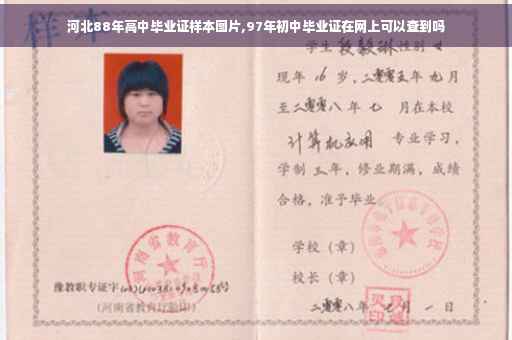 河北88年高中毕业证样本图片,97年初中毕业证在网上可以查到吗
样本
学生段毅琳性别女
现年16岁,二零零五年九月
至二零零八年七月在本校
计算机应用 专业学习,
学制三年,修业期满,成绩
合格,准予毕业。
学校（章）
校长（章）
二零零八年七月一日
河南省教育厅
豫教职专证字
(河南省教育厅监印)